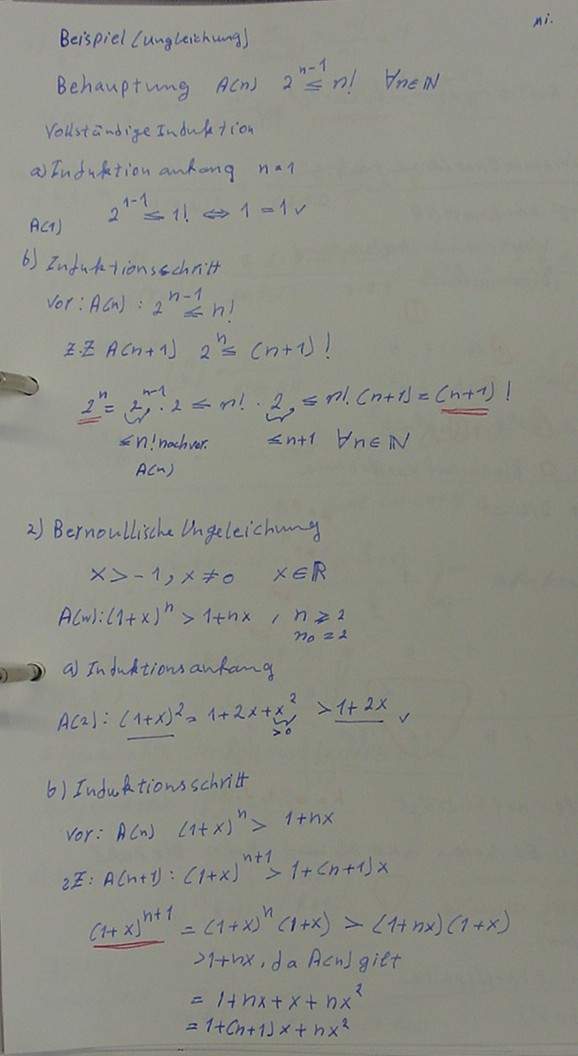 Mi.
Beispiel (Ungleichung)
Behauptung A(n) 2^{n-1} ≤ n! ∀n∈ℕ
Vollständige Induktion
a) Induktionanfang n=1
A(1) 2^{1-1} ≤ 1! ⇔ 1 = 1 ✓
b) Induktionsschritt
Vor: A(n): 2^{n-1} ≤ n!
Z.Z A(n+1) 2^n ≤ (n+1)!
2^n = 2^{n-1} · 2 ≤ n! · 2 ≤ n! (n+1) = (n+1)!
≤ n! nach vor. ≤ n+1 ∀n∈ℕ
A(n)
2) Bernoullische Ungeleichung
x > -1, x ≠ 0 x∈ℝ
A(n): (1+x)^n > 1+nx , n ≥ 2
n₀ = 2
a) Induktionsanfang
A(2): (1+x)^2 = 1+2x+x^2 > 1+2x ✓
>0
b) Induktionsschritt
Vor: A(n) (1+x)^n > 1+nx
zZ: A(n+1): (1+x)^{n+1} > 1+(n+1)x
(1+x)^{n+1} = (1+x)^n (1+x) > (1+nx)(1+x)
>1+nx, da A(n) gilt
= 1+nx+x+nx^2
= 1+(n+1)x+nx^2